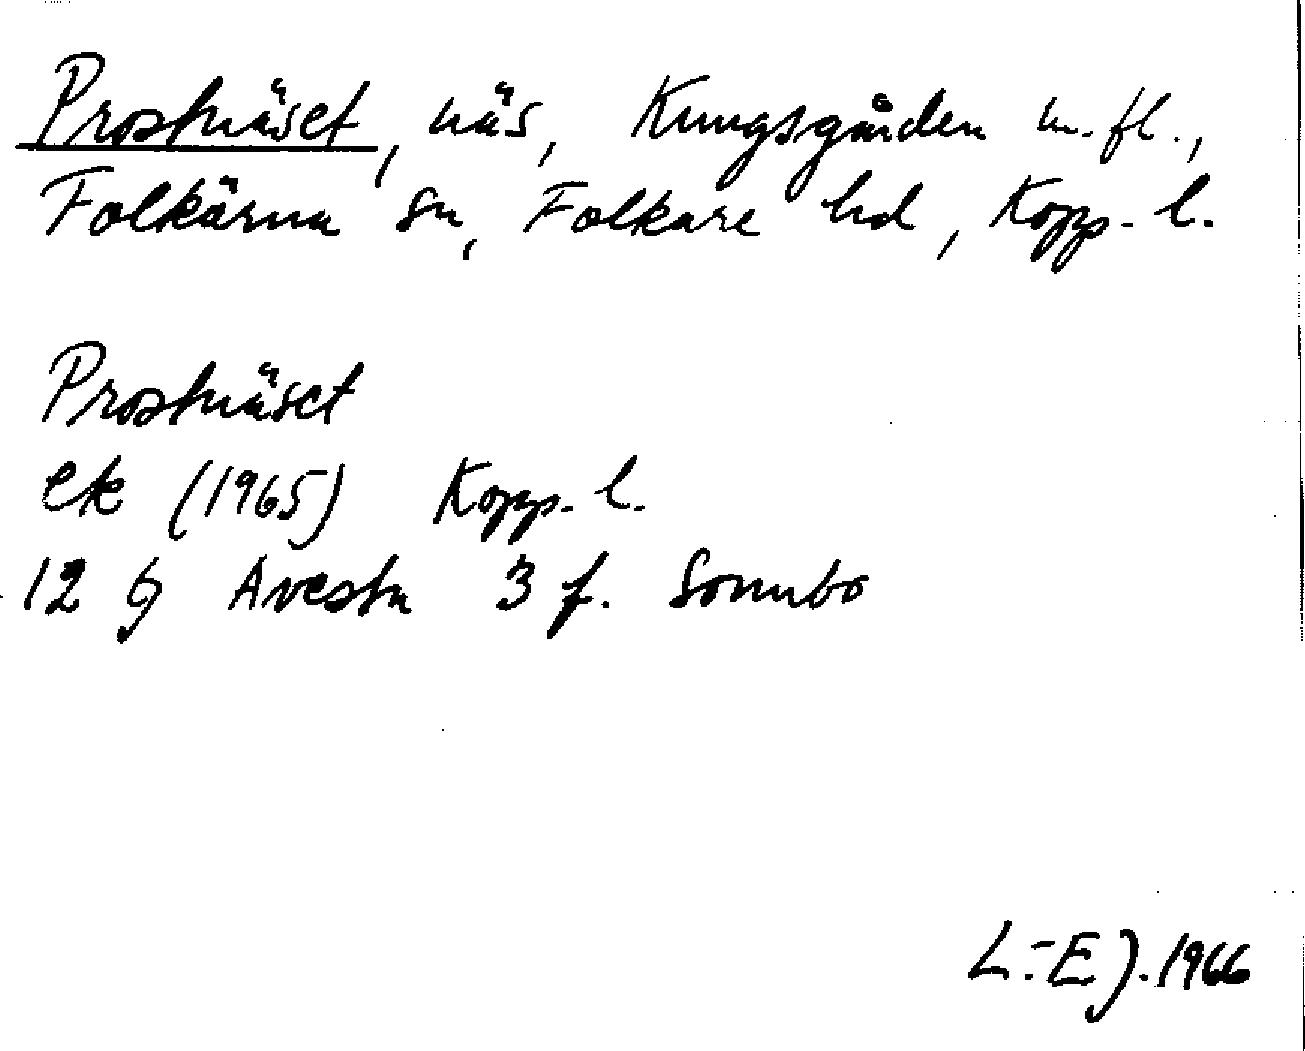 Prostnäset, näs, Kungsgården m.fl.,
Folkärna sn, Folkare hd, Kopp. l.
Prostnäset
ek (1965) Kopp. l.
12 G Avesta 3 f. Sonnbo
L.-E J. 1966